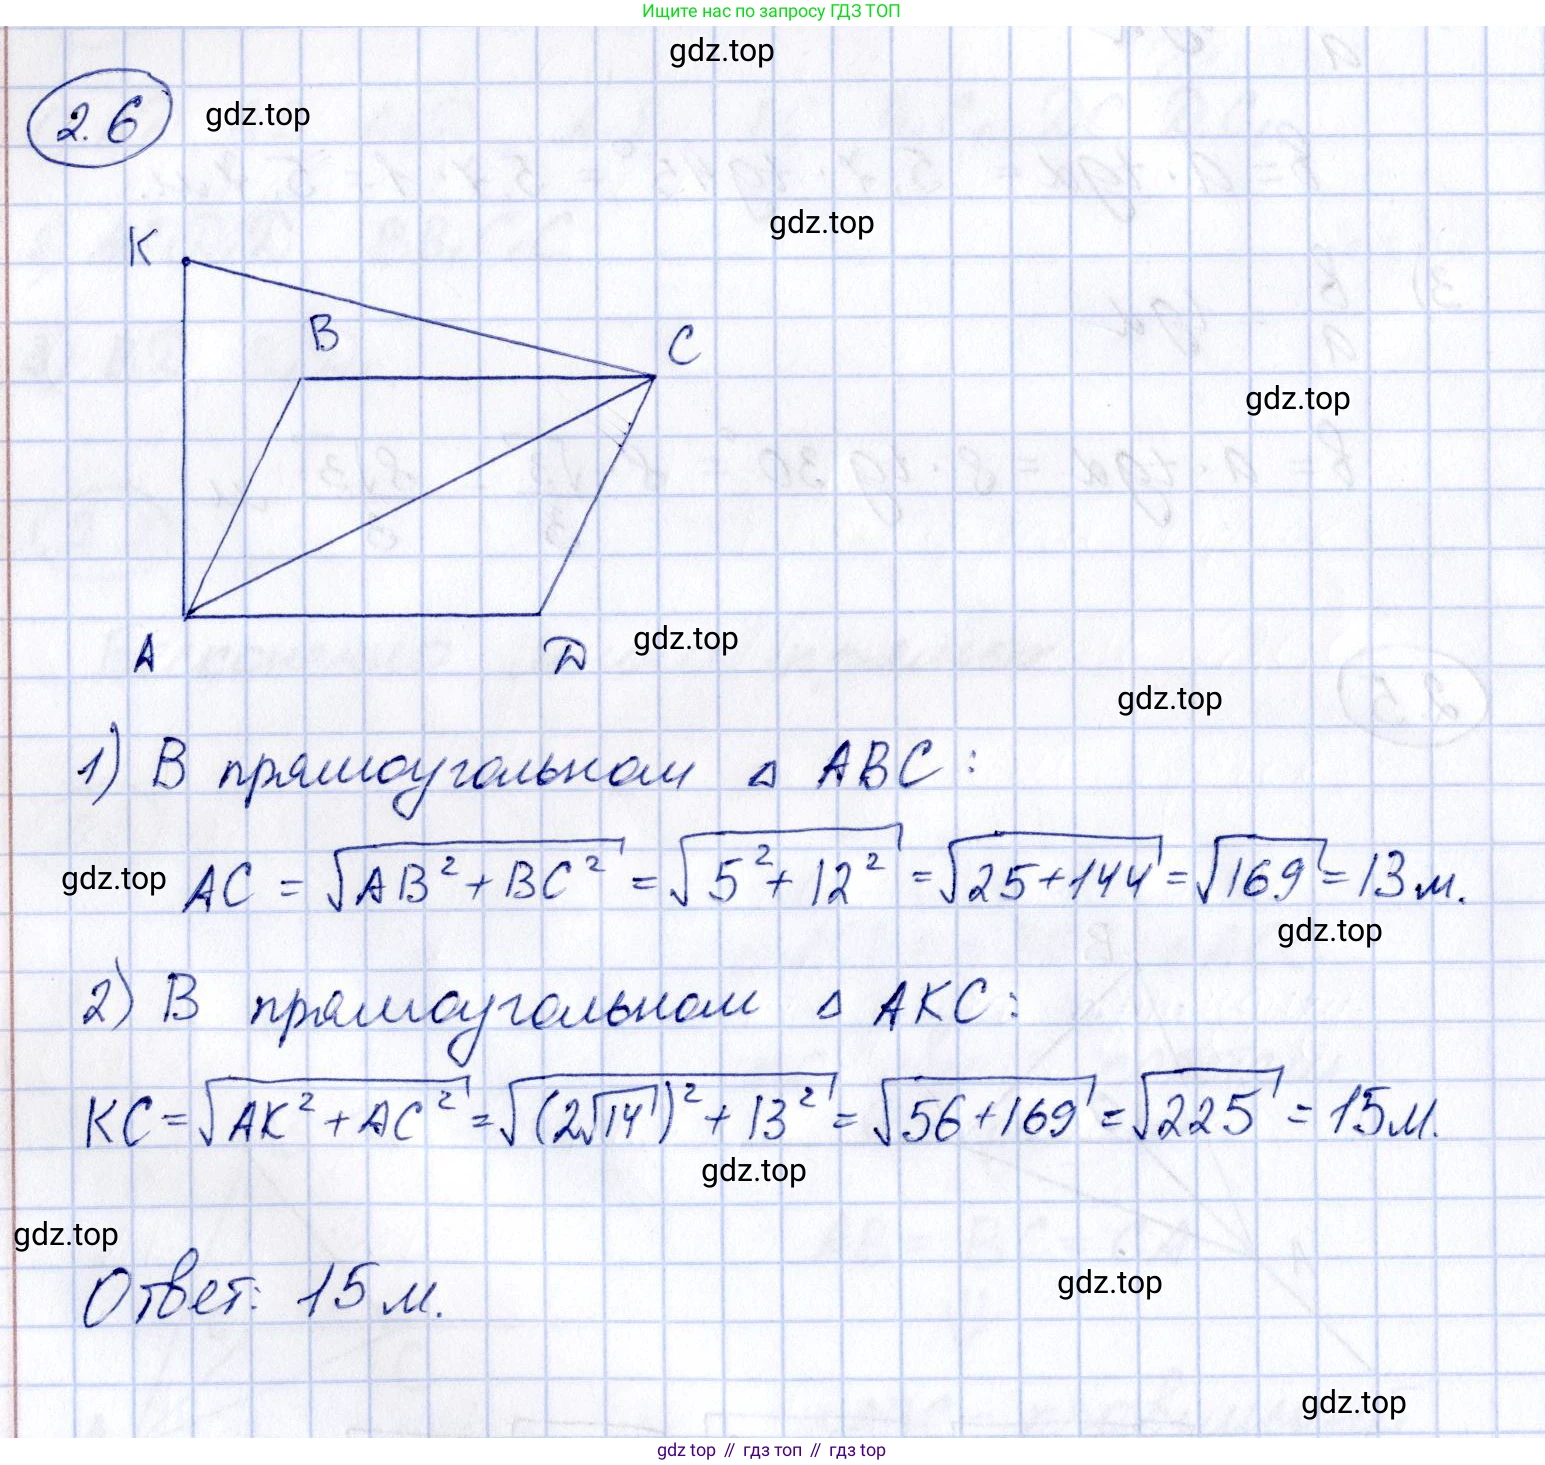 Ищите нас по запросу ГДЗ ТОП
gdz.top
2.6
gdz.top
gdz.top
K
B
C
gdz.top
A
D
gdz.top
gdz.top
1) В прямоугольном △ ABC:
gdz.top
AC = √(AB² + BC²) = √(5² + 12²) = √(25 + 144) = √169 = 13 м.
gdz.top
2) В прямоугольном △ AKC:
KC = √(AK² + AC²) = √((2√14)² + 13²) = √(56 + 169) = √225 = 15 м.
gdz.top
gdz.top
Ответ: 15 м.
gdz.top
gdz.top
gdz top // гдз топ // gdz top